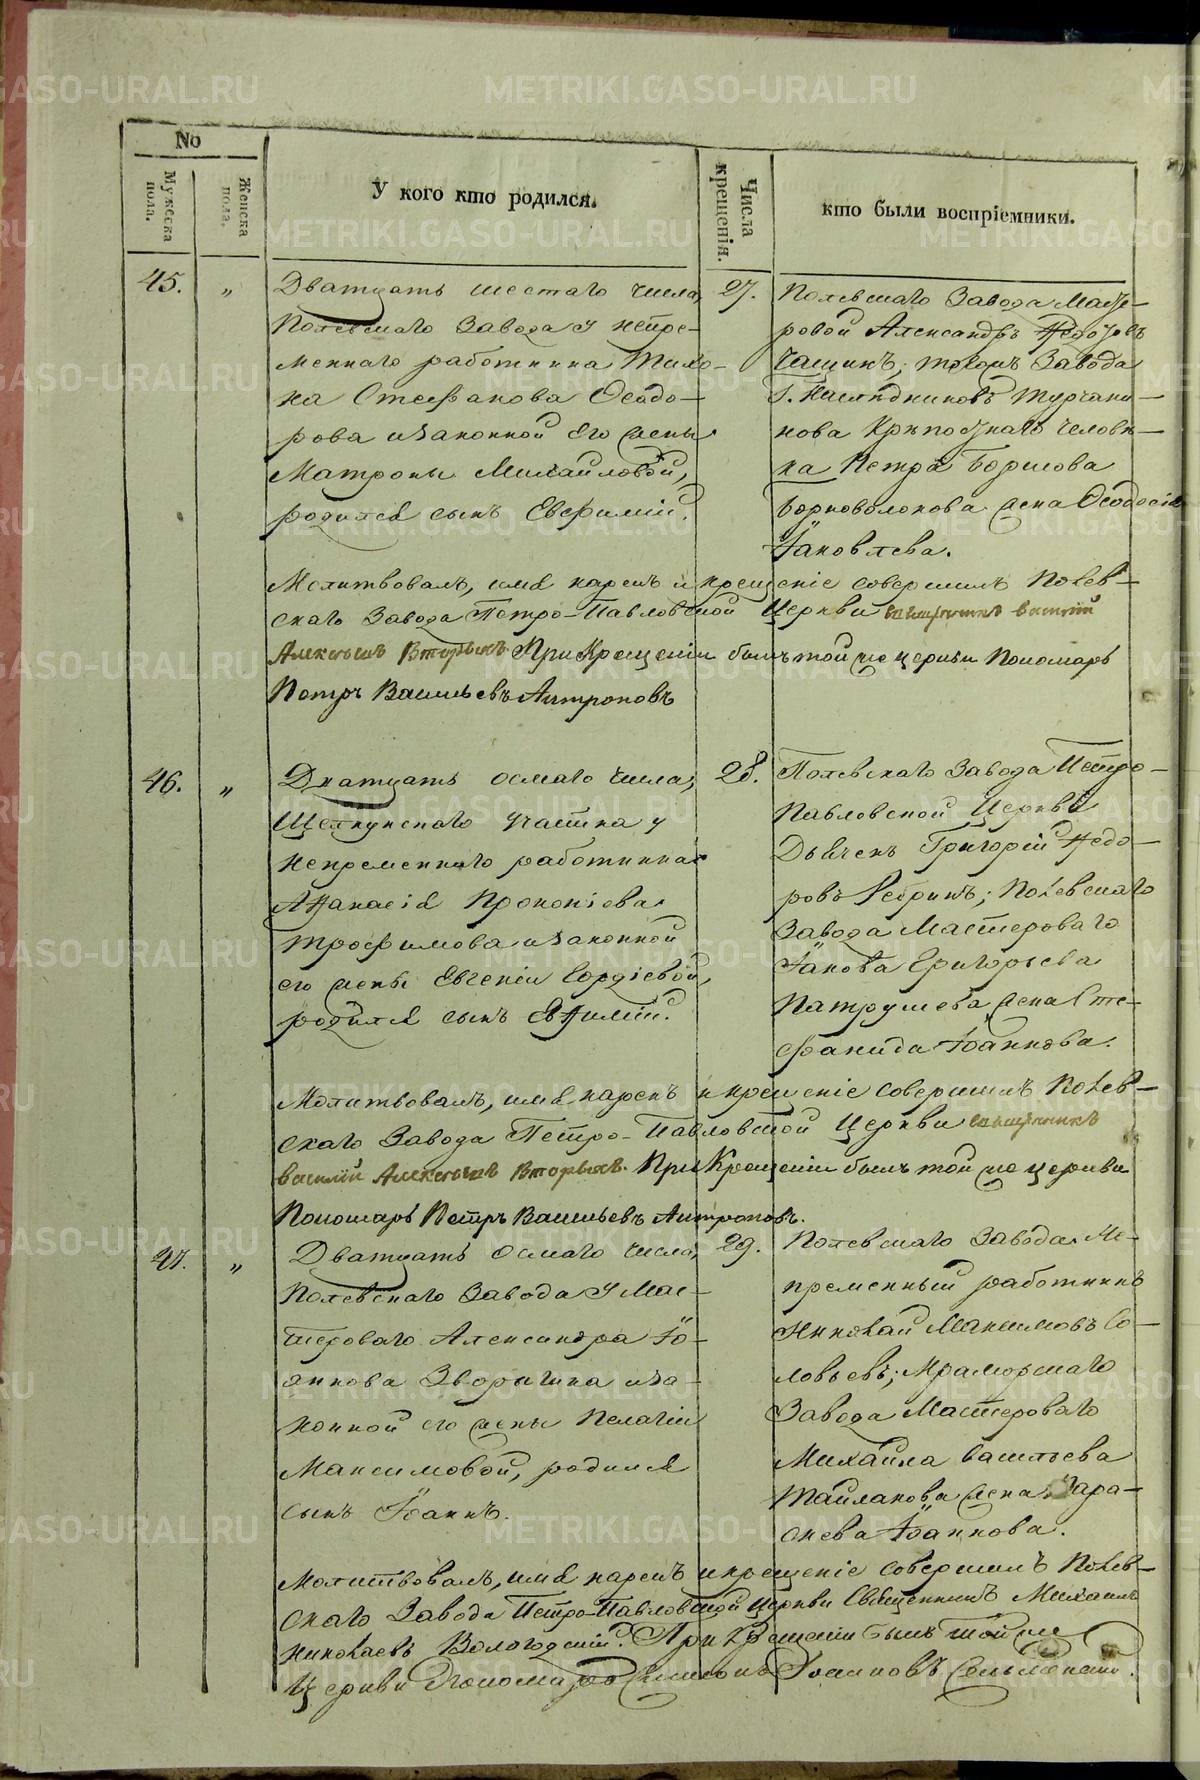 No
Мужеска пола.
Женска пола.
У кого кто родился.
Числа крещенія.
кто были воспріемники.
45.
„
Дватцать шестаго числа,
Полевскаго Завода у непре-
меннаго работника Тихо-
на Стефанова Ѳеодо-
рова изаконной его жены
Матроны Михайловой,
родился сынъ Евфимій.
27.
Полевскаго Завода Масте-
ровой Александръ
тогожъ Завода
Г. Наслѣдниковъ Турчани-
нова Крѣпостнаго человѣ-
ка Петра Борисова
жена Ѳеодосія
Іаковлева.
Молитвовалъ, имя нарекъ и крещеніе совершилъ Полев-
скаго Завода Петро-Павловской Церкви священникъ Василій
Алексѣевъ Вторыхъ. При Крещеніи былъ той же церкви Пономарь
Петръ Васильевъ Антроповъ
46.
„
Дватцать осмаго числа,
Щелкунскаго участка у
непременнаго работника
Аѳанасія Прокопіева
Трофимова изаконной
его жены Евгеніи Гордіевой,
родился сынъ Еѳимій.
28.
Полевскаго Завода Петро-
Павловской Церкви
Дьячекъ Григорій Ѳедо-
ровъ Ребринъ; Полевскаго
Завода Мастероваго
Іакова Григорьева
Патрушева жена Сте-
фанида Іоаннова.
Молитвовалъ, имя нарекъ и крещеніе совершилъ Полев-
скаго Завода Петро-Павловской Церкви священникъ
Василій Алексѣевъ Вторыхъ. При Крещеніи былъ той же церкви
Пономарь Петръ Васильевъ Антроповъ.
47.
„
Дватцать осмаго числа,
Полевскаго Завода у Мас-
тероваго Александра Іо-
аннова Зворыгина иза-
конной его жены Пелагіи
Максимовой, родился
сынъ Іоаннъ.
29.
Полевскаго Завода Не-
пременный работникъ
Николай Максимовъ Со-
ловьевъ; Мраморскаго
Завода Мастероваго
Михаила Васильева
Тайланова жена Пара-
скева Іоаннова.
Молитвовалъ, имя нарекъ и крещеніе совершилъ Полев-
скаго Завода Петро-Павловской Церкви Священникъ Михаилъ
Николаевъ Вологодскій. При Крещеніи былъ той же
Церкви Пономарь Симеонъ Іоанновъ
METRIKI.GASO-URAL.RU